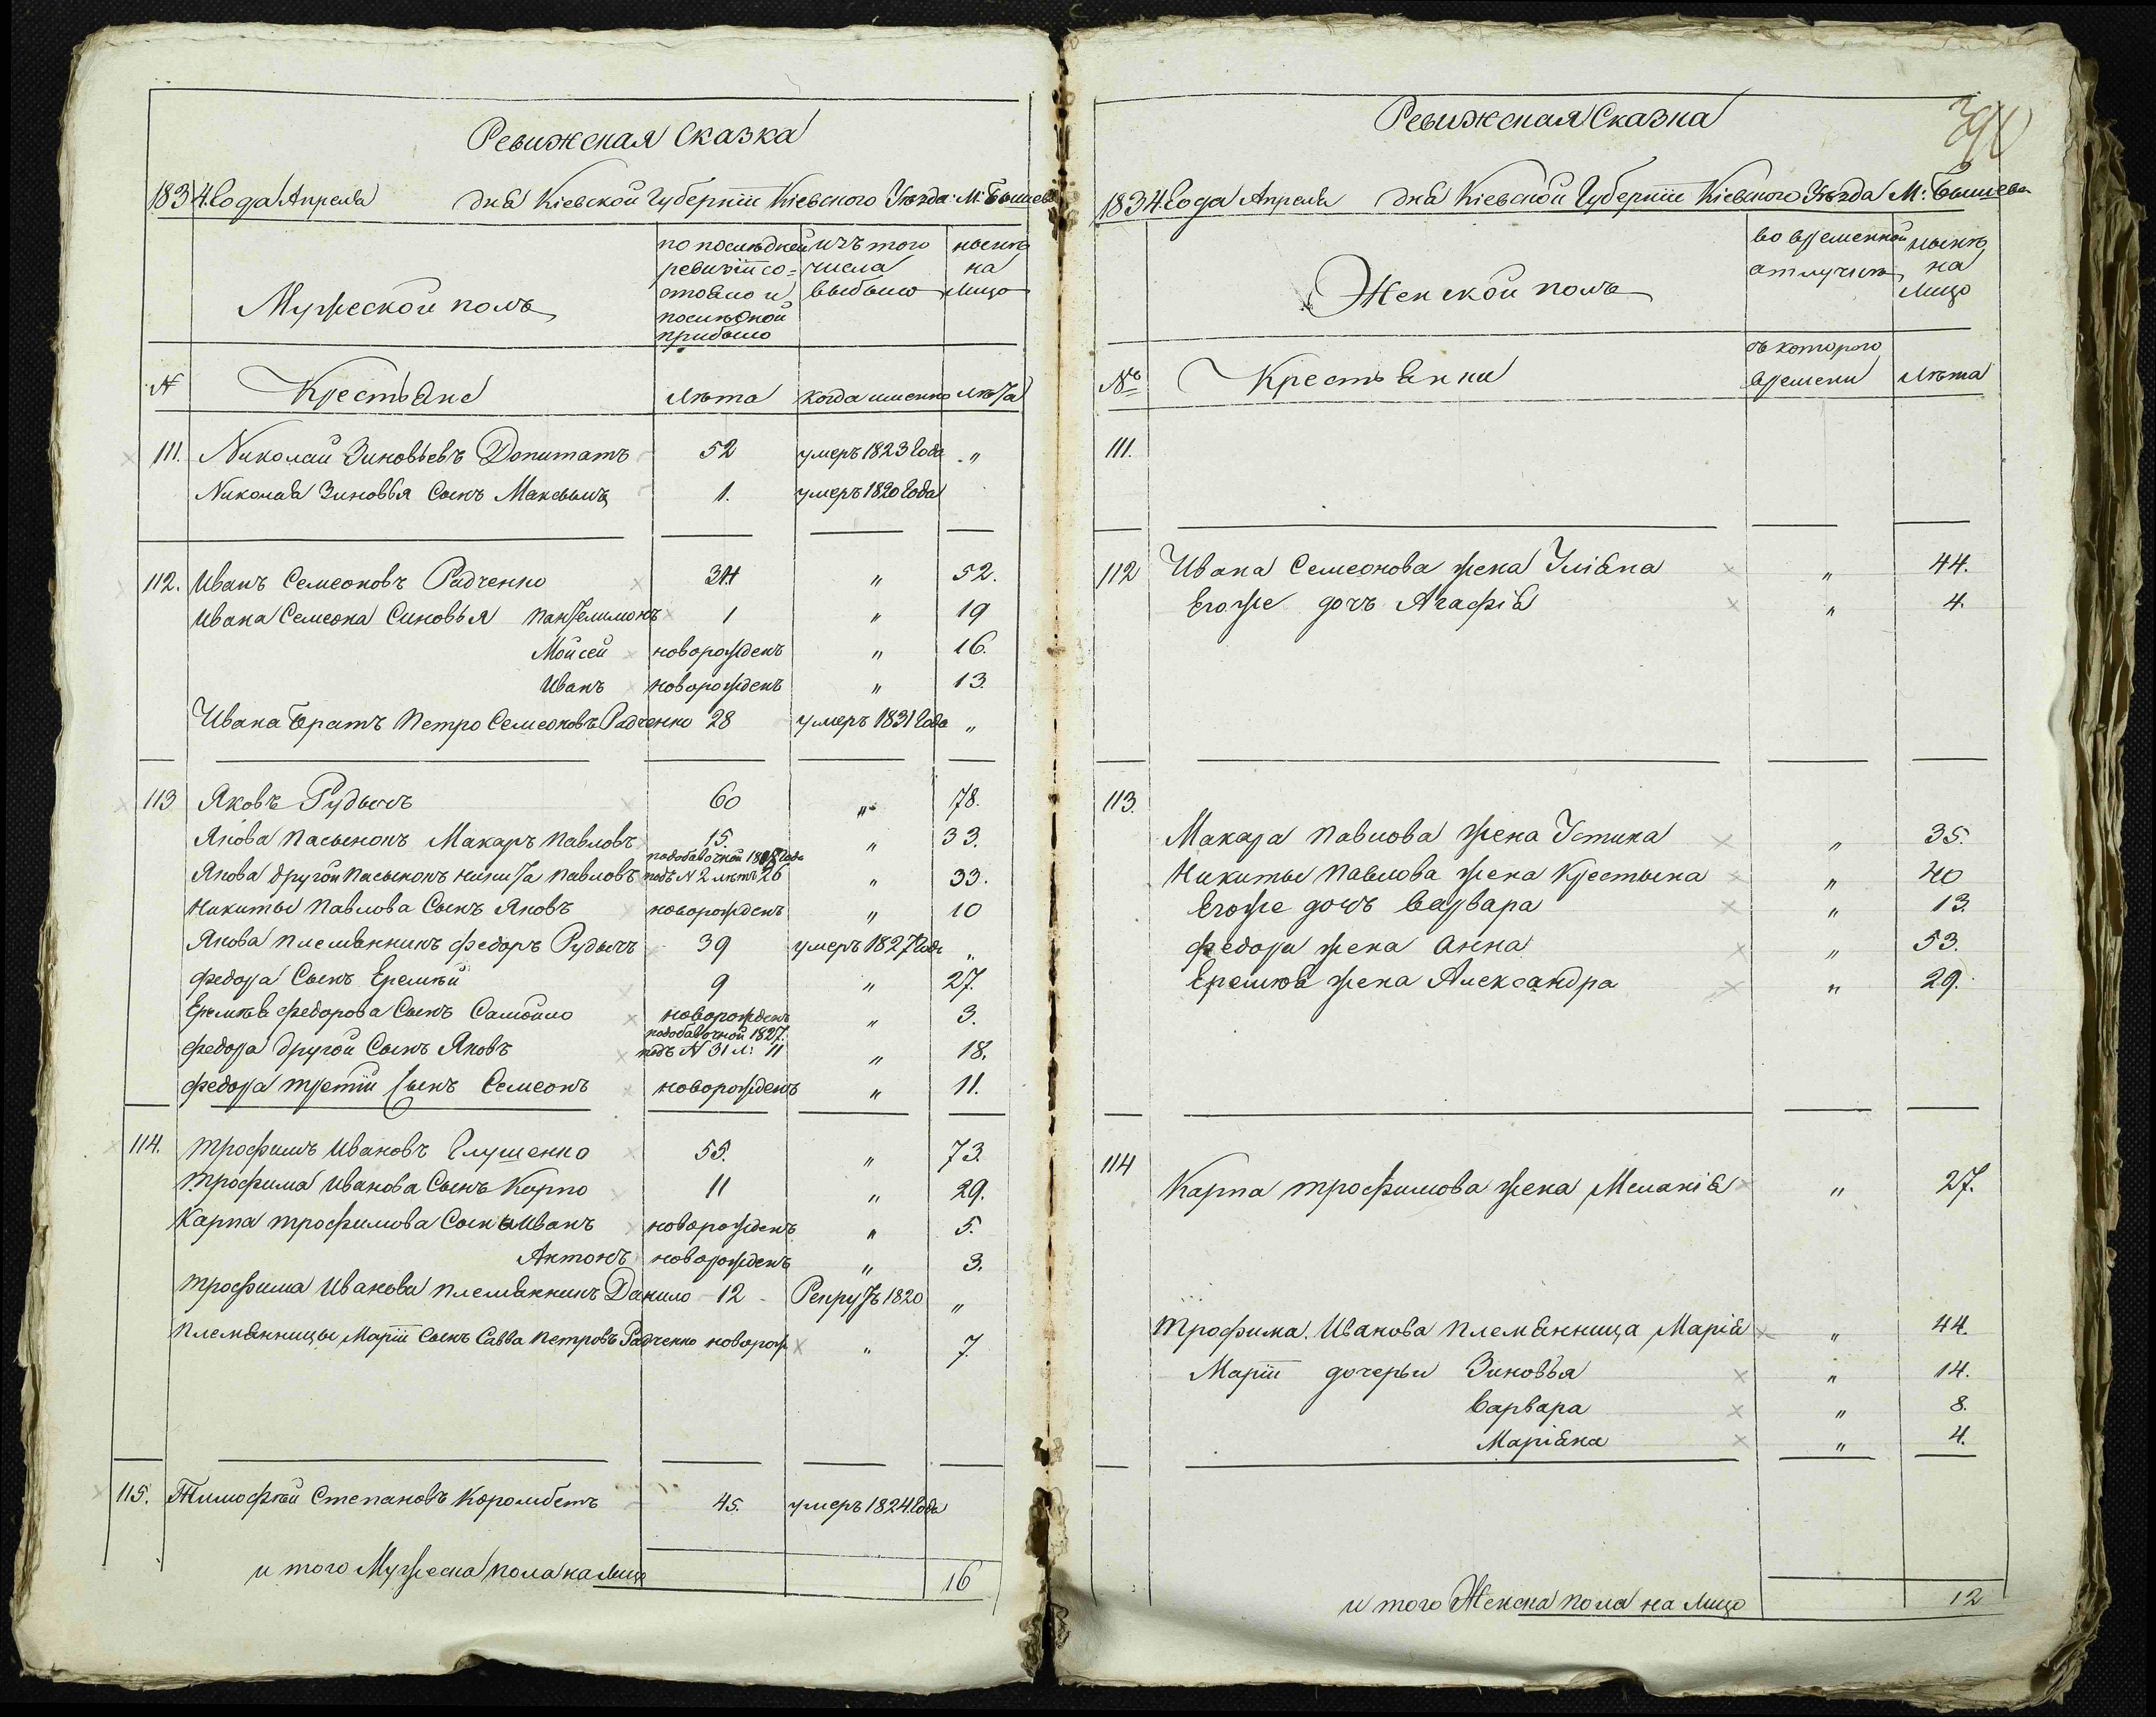 Ревижская Сказка
1834 Года Апреля дня Кіевской Губерніи Кіевского Уѣзда М: Бышева
Мужеской полъ
по послѣдней
ревизіи со=
стояло и
послѣ оной
прибыло
изъ того
числа
выбыло
нынѣ
на
лицо
№ Крестьяне Лѣта когда именно Лѣта
111. Николай Зиновьевъ Допитатъ 52 умеръ 1823 Года „
Николая Зиновья Сынъ Максымъ 1. умеръ 1820 Года
112. Иванъ Семеоновъ Радченко 34 „ 52.
Ивана Семеона Синовья Пантелимонъ 1 „ 19
Мойсей новорожденъ „ 16.
Иванъ новорожденъ „ 13.
Ивана Братъ Петро Семеоновъ Радченко 28 умеръ 1831 Года „
113 Яковъ Рудычъ 60 „ 78.
Якова пасынокъ Макаръ Павловъ 15. „ 33.
подобавочной 18 Года
Якова другой пасынокъ Никита Павловъ подъ N 2 лѣтъ 26 „ 33.
Никиты Павлова Сынъ Яковъ новорожденъ „ 10
Якова племянникъ Федоръ Рудычъ 39 умеръ 1827 Года „
Федора Сынъ Еремѣй 9 „ 27.
Еремѣя Федорова Сынъ Самойло новорожденъ „ 3.
подобавочной 1827.
Федора другой Сынъ Яковъ подъ N 31 л: 11 „ 18.
Федора третій Сынъ Семеонъ новорожденъ „ 11.
114. Трофимъ Ивановъ Глушенко 55. „ 73.
Трофима Иванова Сынъ Карпо 11 „ 29.
Карпа Трофимова Сыны Иванъ новорожденъ „ 5.
Антонъ новорожденъ „ 3.
Трофима Иванова племянникъ Данило 12 Рекрутъ 1820 „
Племянницы Маріи Сынъ Савва Петровъ Радченко новорож „ 7.
115. Тимофѣй Степановъ Коромбетъ 45. умеръ 1824 Года
и того Мужеска пола на лицо 16
Ревижская Сказка
1834 Года Апреля дня Кіевской Губерніи Кіевского Уѣзда М: Бышева
Женской полъ
во временной
отлучкѣ
нынѣ
на
лицо
№ Крестьянки
съ которого
времени
Лѣта
111.
112 Ивана Семеонова жена Уліяна „ 44.
Егоже дочъ Агафія „ 4.
113.
Макара Павлова жена Устина „ 35.
Никиты Павлова жена Крестына „ 40
Егоже дочъ Варвара „ 13.
Федора жена Анна „ 53.
Еремѣя жена Александра „ 29.
114
Карпа Трофимова жена Меланія „ 27.
Трофима Иванова племянница Марія „ 44.
Маріи дочерьи Зиновья „ 14.
Варвара „ 8.
Маріяна „ 4.
и того Женска пола на лицо 12